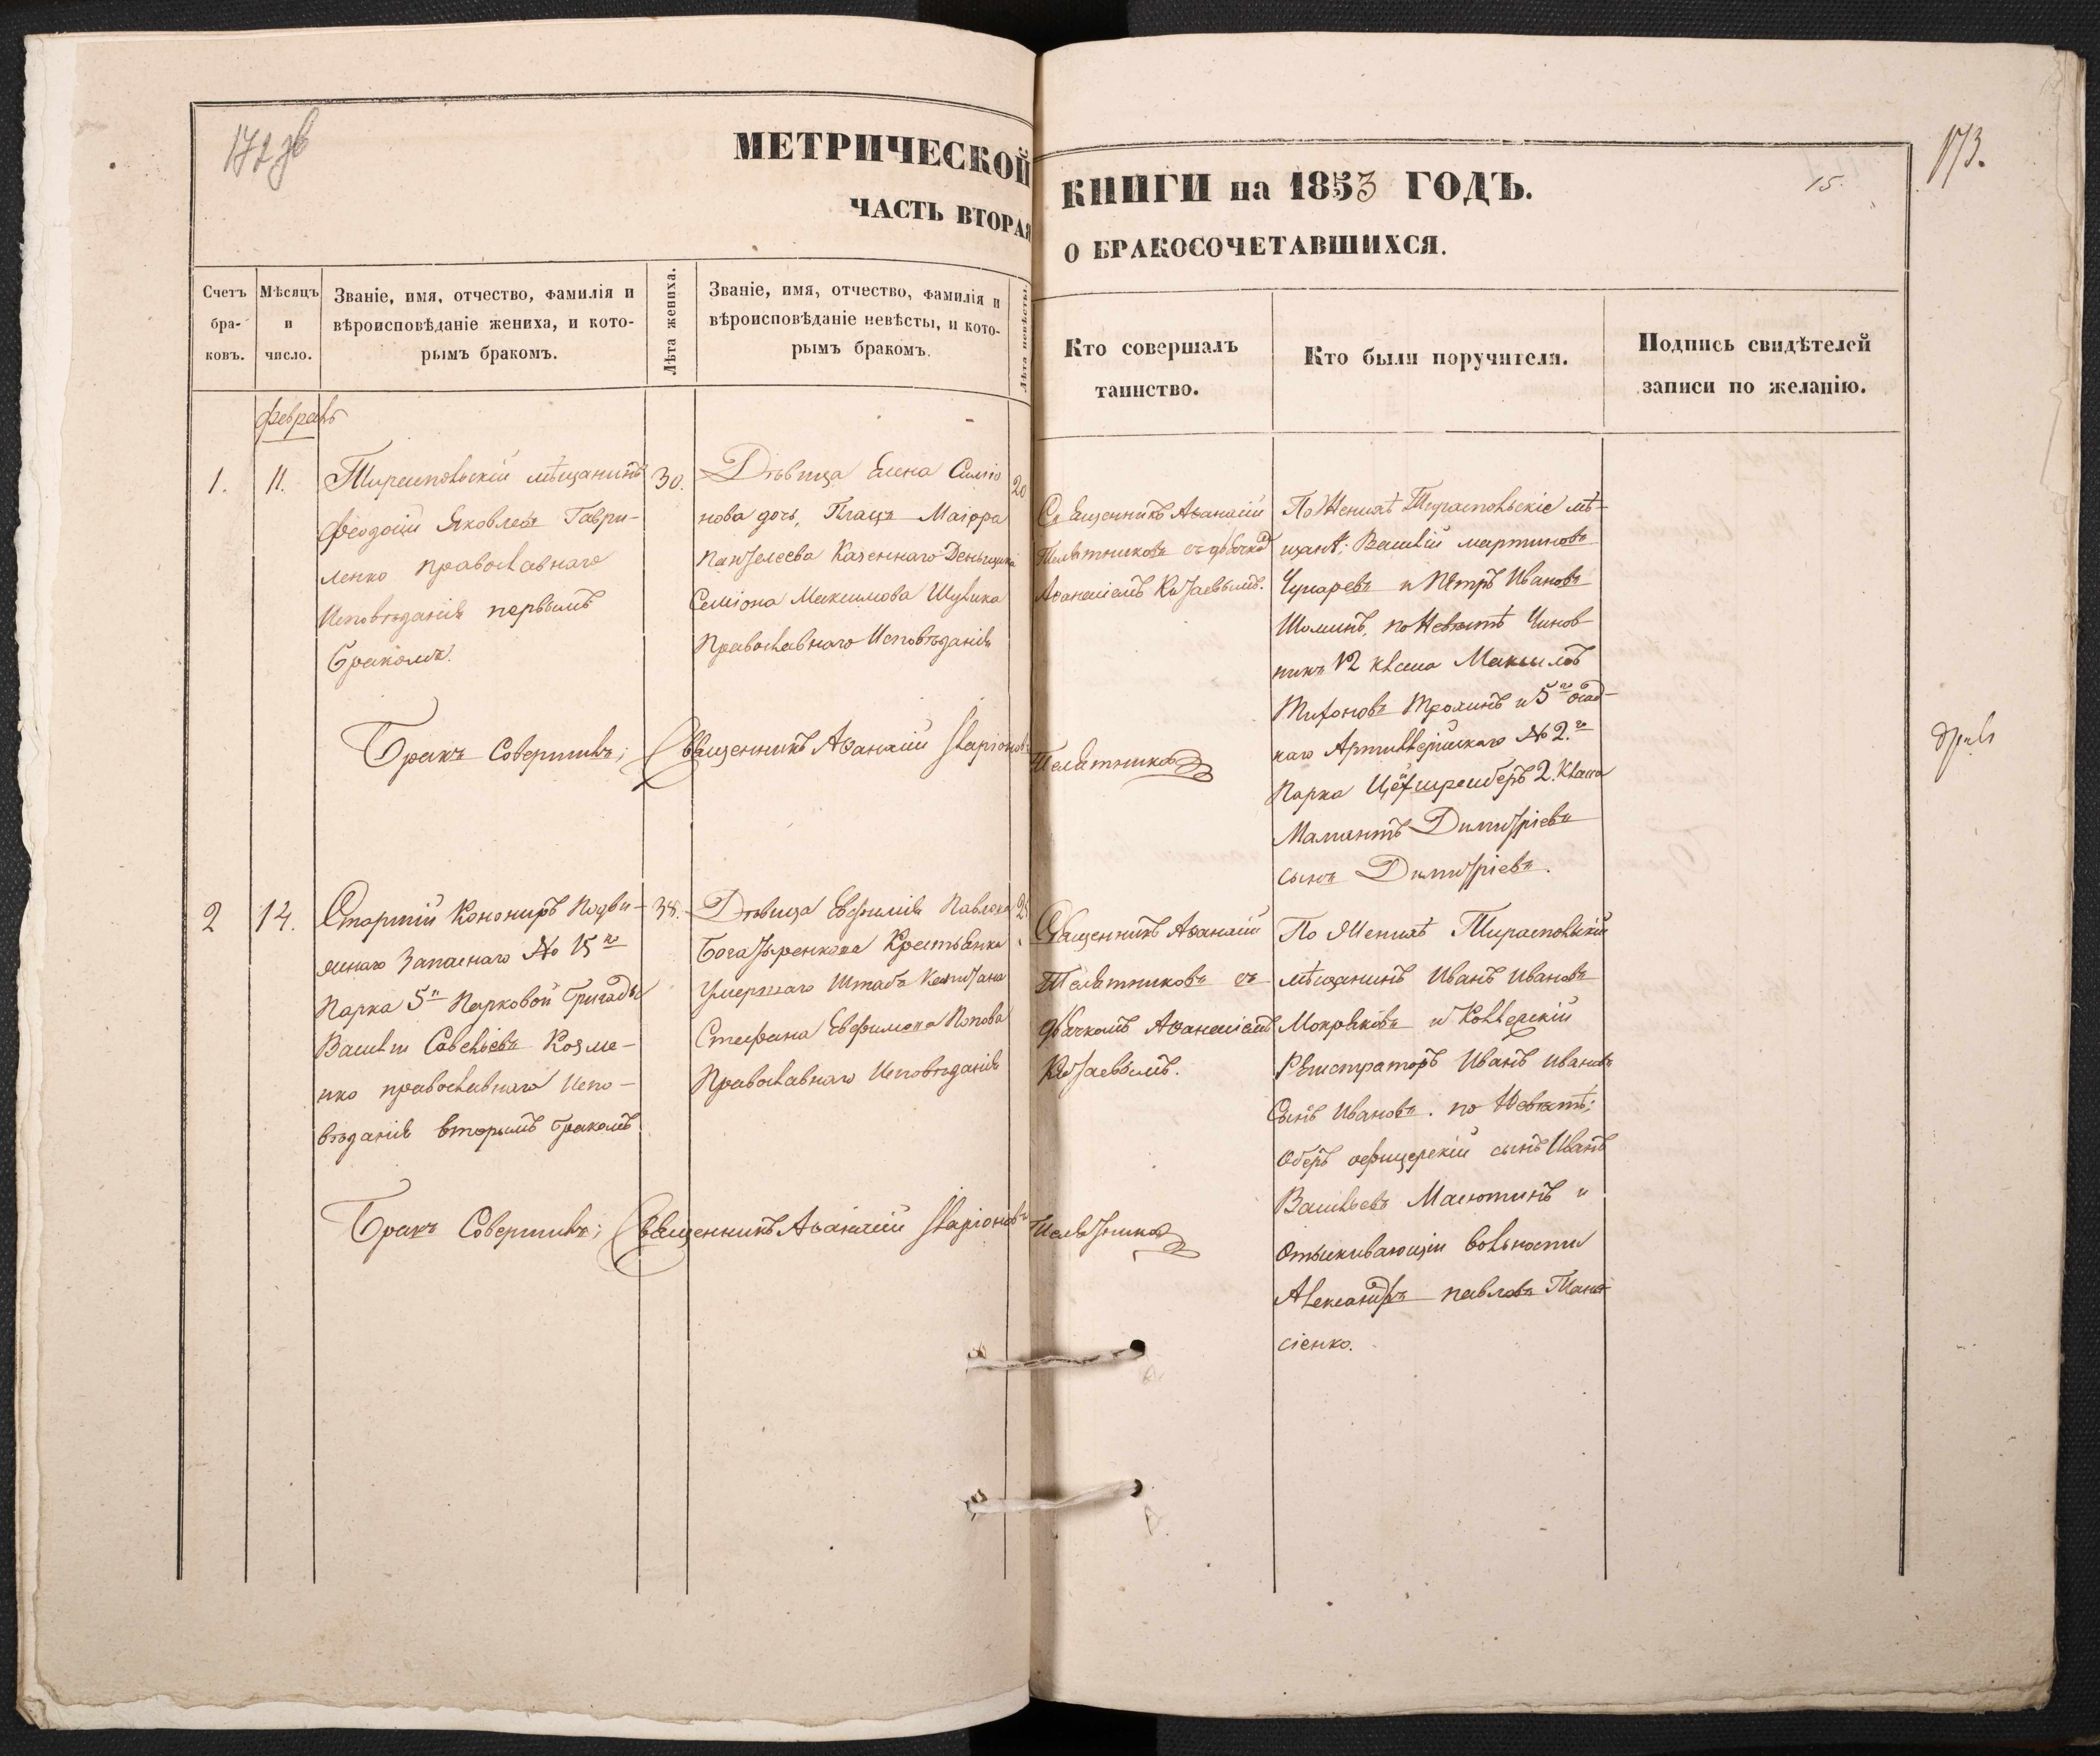 172 зв
МЕТРИЧЕСКОЙ КНИГИ на 1853 ГОДЪ.
15.
173.
ЧАСТЬ ВТОРАЯ О БРАКОСОЧЕТАВШИХСЯ.
Счетъ
бра-
ковъ.
Мѣсяцъ
и
число.
Званіе, имя, отчество, фамилія и
вѣроисповѣданіе жениха, и кото-
рымъ бракомъ.
Лѣта жениха.
Званіе, имя, отчество, фамилія и
вѣроисповѣданіе невѣсты, и кото-
рымъ бракомъ.
Лѣта невѣсты.
Кто совершалъ
таинство.
Кто были поручители.
Подпись свидѣтелей
записи по желанію.
февраль
1.
11.
Тираспольскій мѣщанинъ
Феодосій Яковлевъ Гаври-
ленко православнаго
Исповѣданія первымъ
Бракомъ.
30.
Дѣвица Елена Симіо
нова дочь, Плацъ Маіора
Пантелеева Казеннаго Деньщика
Симіона Максимова Шулика
Православнаго Исповѣданія
20
Священникъ Аѳанасій
Телятниковъ съ дьячкомъ
Аѳанасіемъ Китаевымъ.
По Женихѣ Тираспольскіе мѣ-
щане: Василій мартиновъ
Чумаревъ и Петръ Ивановъ
Шоминъ, по Невѣстѣ Чинов
никъ 12 класа Максимъ
Тихоновъ Троминъ и 5го осад-
наго Артиллерійскаго № 2.го
Парка Цейхшрейберъ 2. Класа
Мамантъ Димитріевъ
сынъ Димитріевъ.
Бракъ Совершилъ; Священникъ Аѳанасій Иларіоновъ Телятниковъ
2
14.
Старшій Конониръ Подви-
жнаго Запаснаго № 15го
Парка 5й Парковой бригады
Василій Савельевъ Козме-
нко православнаго Испо-
вѣданія вторымъ бракомъ
38.
Дѣвица Евфимія Павлова
Богатыренкова Крестьянка
умершаго Штабъ Капитана
Стефана Евфимова Попова
Православнаго Исповѣданія
Священникъ Аѳанасій
Телятниковъ съ
дьячкомъ Аѳанасіемъ
Китаевымъ.
По Женихѣ Тираспольскій
мѣщанинъ Иванъ Ивановъ
Мокряковъ и Коллежскій
Регистраторъ Иванъ Ивановъ
Сынъ Ивановъ. по Невѣстѣ:
Оберъ офицерскій сынъ Иванъ
Васильевъ Масютинъ и
Отыскивающій вольности
Александръ павловъ Тана
сіенко.
Бракъ Совершилъ; Священникъ Аѳанасій Иларіоновъ Телятниковъ